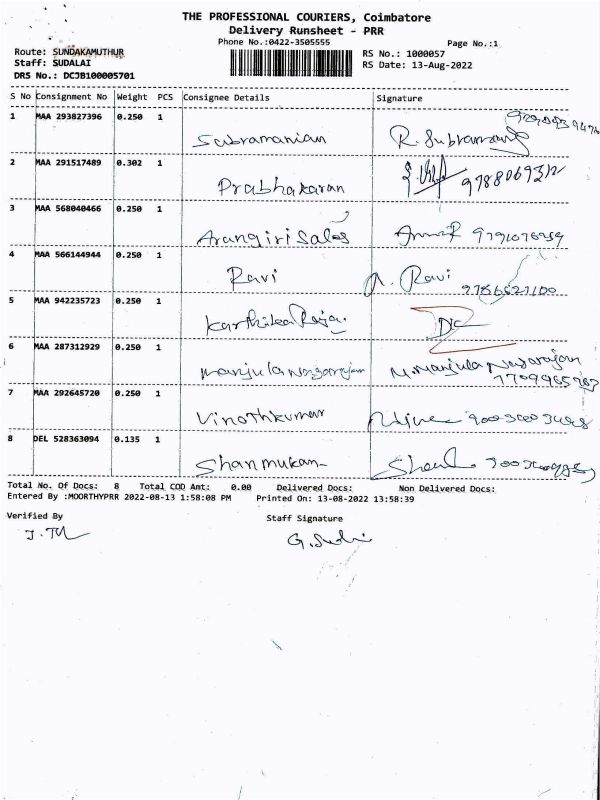 THE PROFESSIONAL COURIERS, Coimbatore
Delivery Runsheet - PRR
Phone No.:0422-3505555
Page No.:1
Route: SUNDAKAMUTHUR
Staff: SUDALAI
DRS No.: DCJB100005701
RS No.: 1000057
RS Date: 13-Aug-2022
S No Consignment No Weight PCS Consignee Details Signature
1 MAA 293827396 0.250 1
Subramanian R. Subramani
2 MAA 291517489 0.302 1
Prabhakaran
3 MAA 568040466 0.250 1
Arangiri Sales
4 MAA 566144944 0.250 1
Ravi Ravi 9786521100
5 MAA 942235723 0.250 1
Karthika Raja.
6 MAA 287312929 0.250 1
Manjula Nagarajan M. Manjula Nagarajan
7 MAA 292645720 0.250 1
Vinothkumar
8 DEL 528363094 0.135 1
Shanmukan
Total No. Of Docs: 8 Total COD Amt: 0.00 Delivered Docs: Non Delivered Docs:
Entered By :MOORTHYPRR 2022-08-13 1:58:08 PM Printed On: 13-08-2022 13:58:39
Verified By Staff Signature